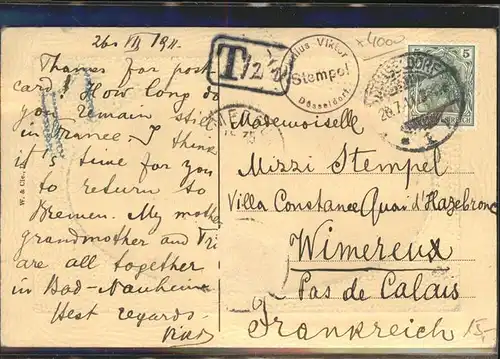 26. VII 1911.
Thames for post
card! How long do
you remain still
in France. I think
it is time for you
to return to
Bremen. My mother
grandmother and Tri
are all together
in Bad-Nauheim
Best regards.
W. & Cie.
T
Viktor
Stempel
Düsseldorf
x4000
5
DÜSSELDORF
26.7.11
Mademoiselle
Mizzi Stempel
Villa Constance Quai d'Hazebrouc
Wimereux
Pas de Calais
Frankreich
15,